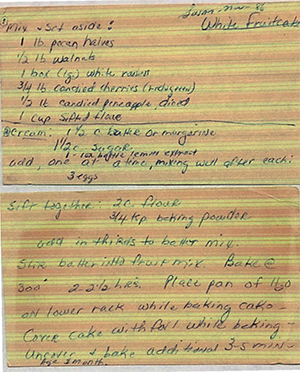 ① Susan - Nov - 86
Mix - Set aside: White Fruitcake
1 lb. pecan halves
1/2 lb walnuts
1 box (lg.) white raisins
3/4 lb candied cherries (red & green)
1/2 lb candied pineapple diced
1 cup sifted flour
② Cream: 1 1/2 c. butter or margarine
1 1/2 c. sugar
1 - oz. bottle lemon extract
add, one at a time, mixing well after each:
3 eggs
Sift together: 2 c. flour
3/4 tsp baking powder
add in thirds to butter mix.
Stir batter into fruit mix. Bake @
300° 2-2 1/2 hrs. Place pan of H20
on lower rack while baking cake -
Cover cake with foil while baking -
Uncover & bake additional 3-5 min -
Age 1 month,